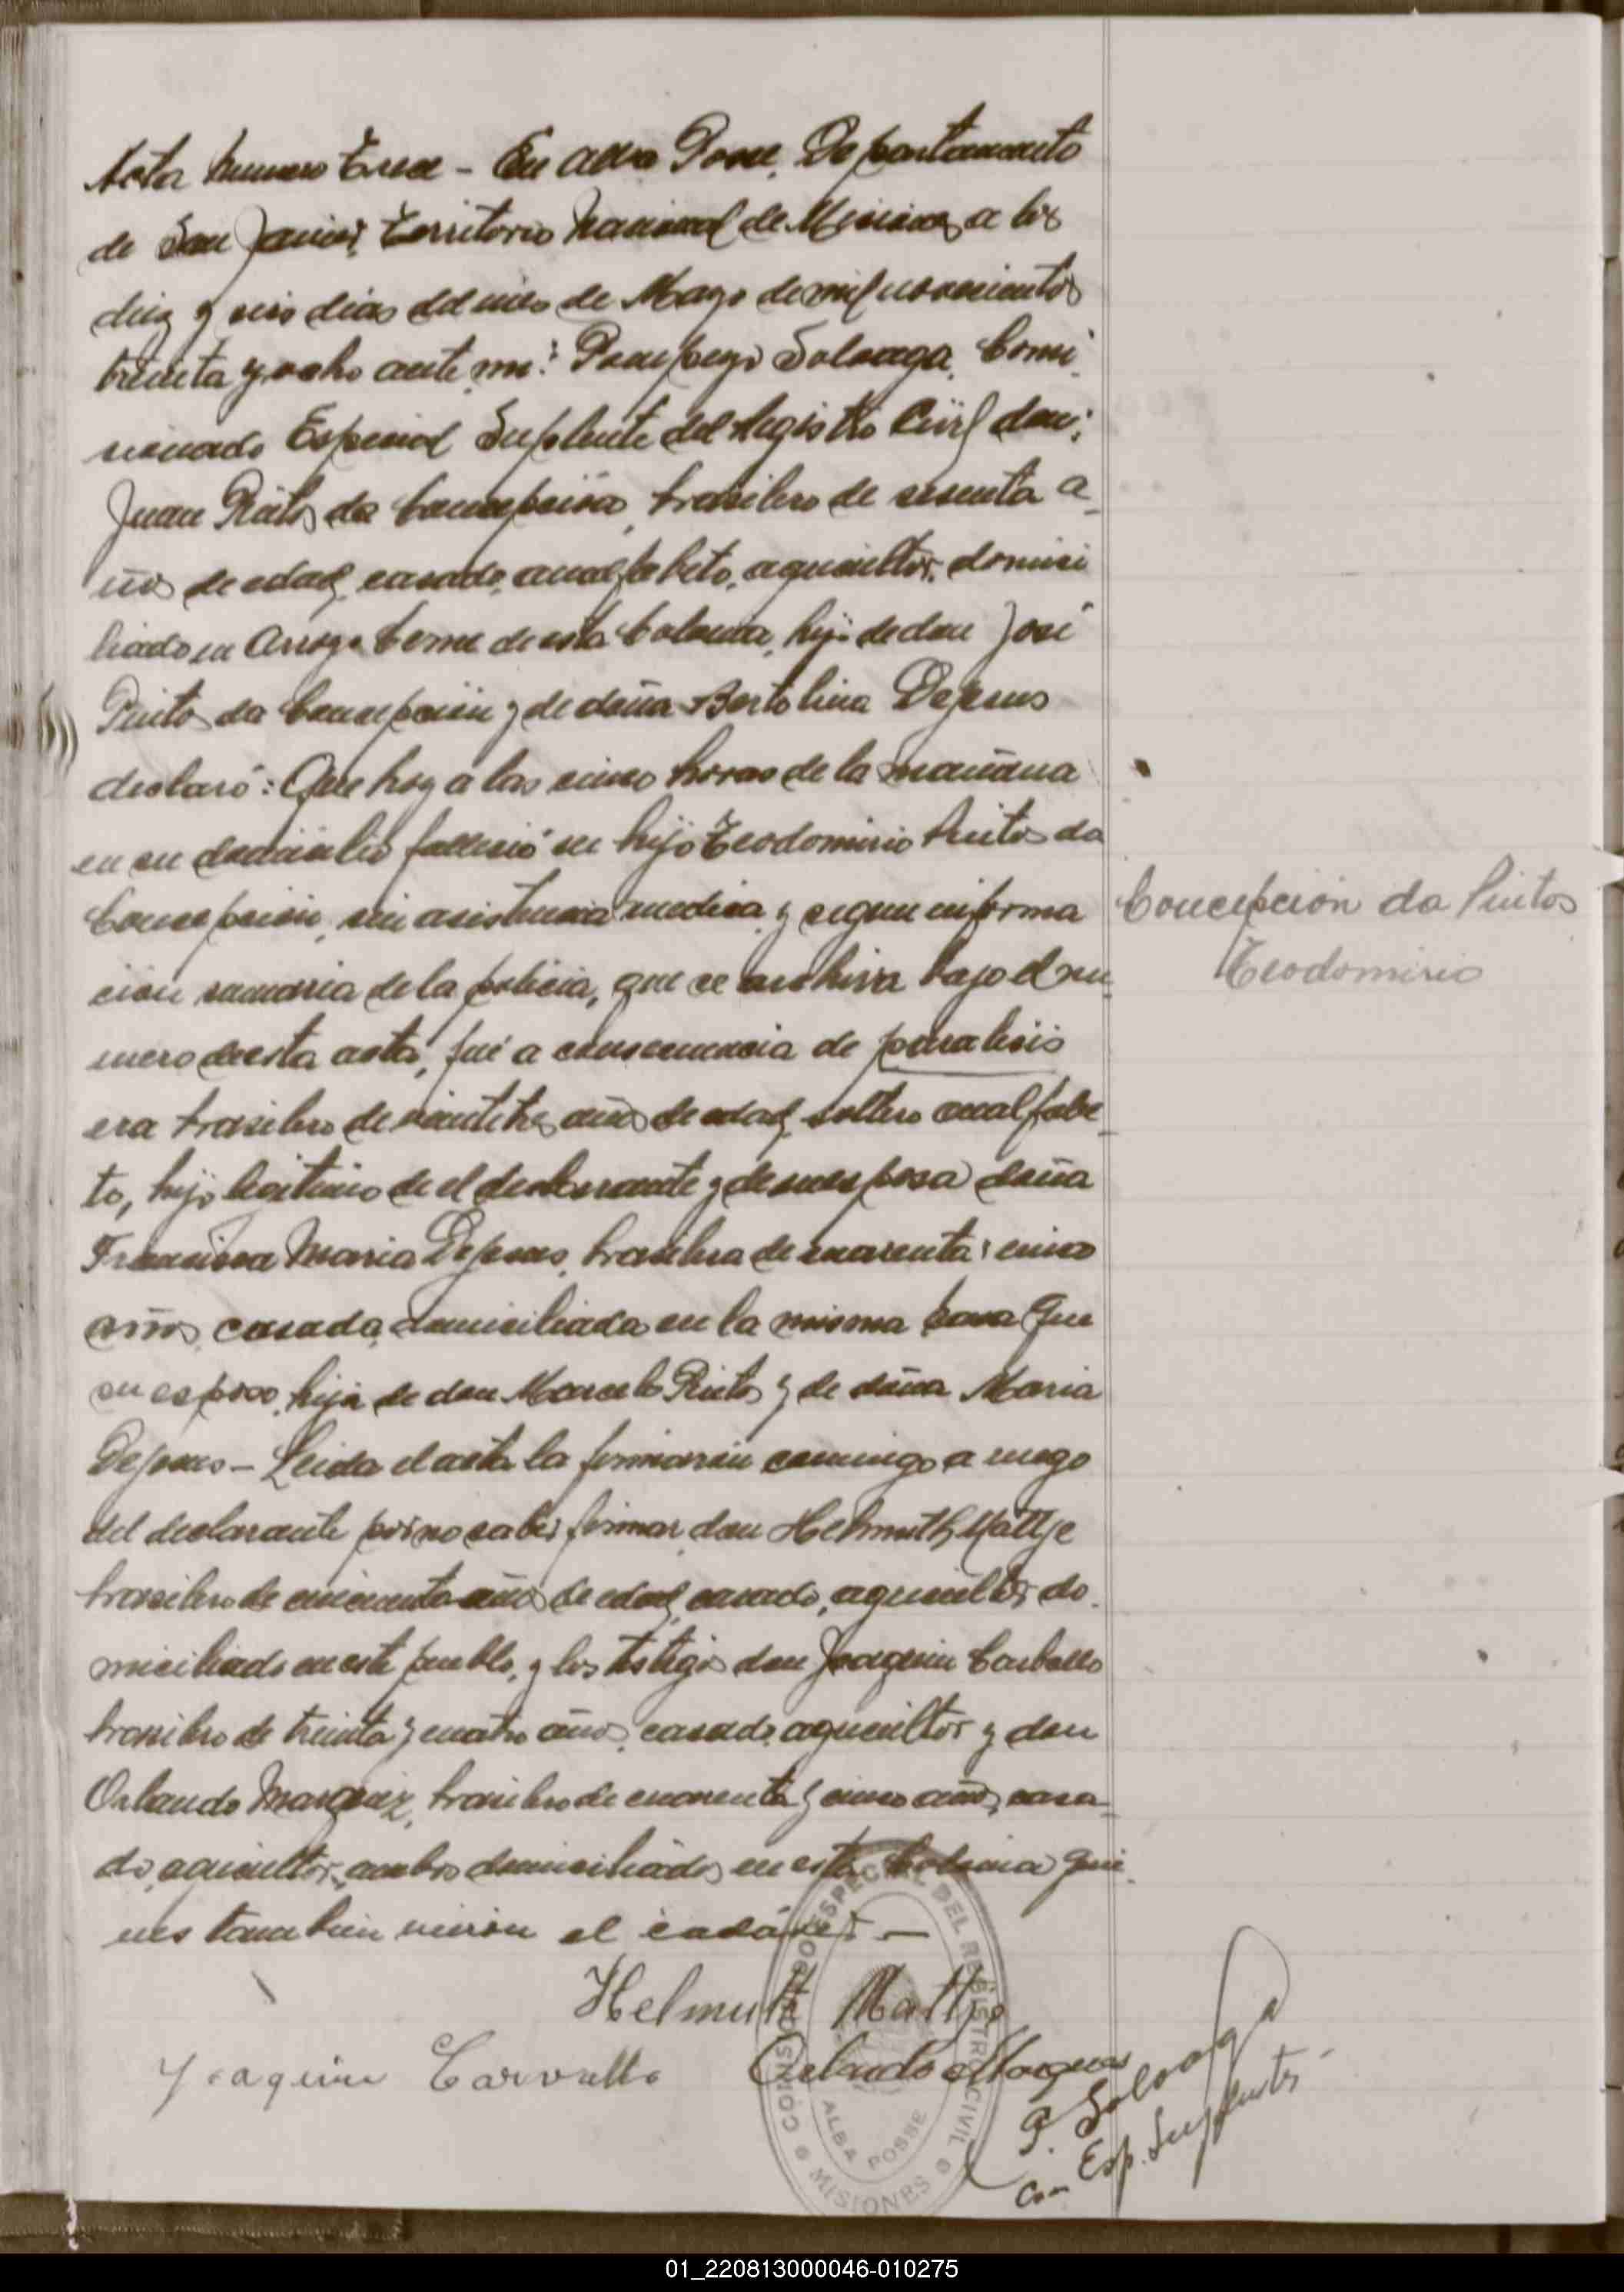 Acta numero Trece - En Alba Posse, Departamento
de San Javier, Territorio Nacional de Misiones, a los
diez y seis dias del mes de Mayo de mil novecientos
treinta y ocho ante mi: Pompeyo Soloaga, Comi
sionado Especial Suplente del Registro Civil don:
Juan Pintos da Concepción, brasilero de sesenta a-
ños de edad, casado, analfabeto, agricultor, domici
liado en Arroyo de esta Colonia, hijo de don José
Pintos da Concepcion y de doña Bertolina Dejesus
declaró: Que hoy a las cinco horas de la mañana
en su domicilio fallesió su hijo Teodomiro Pintos da
Concepcion, sin asistencia medica y segun informa
cion sumaria de la policia, que se archiva bajo el nu-
mero de esta acta, fué a consecuencia de paralisis
era brasilero de veintitres años de edad, soltero analfabe-
to, hijo legitimo de el declarante y de su esposa doña
Francisca Maria Dejesus, brasilera de cuarenta i cinco
años, casada, domiciliada en la misma casa que
su esposo, hija de don Marcelo Pintos y de doña Maria
Dejesus - Leida el acta la firmaron conmigo a ruego
del declarante por no saber firmar, don Helmuth Mattje
brasilero de cincuenta años de edad, casado, agricultor, do-
miciliado en este pueblo, y los testigos don Joaquin Carballo
brasilero de treinta y cuatro años, casado, agricultor y don
Orlando Marquez, brasilero de cuarenta y cinco años, casa-
do, agricultor, ambos domiciliados en esta Colonia quie-
nes tambien vieron el cadáver. -
Concepcion da Pintos
Teodomiro
Helmuth Mattje
Joaquim Carvalho Orlando Marques
P. Soloaga
Com Esp. Suplente
COMISIONADO ESPECIAL DEL REGISTRO CIVIL
ALBA POSSE
MISIONES
01_220813000046-010275